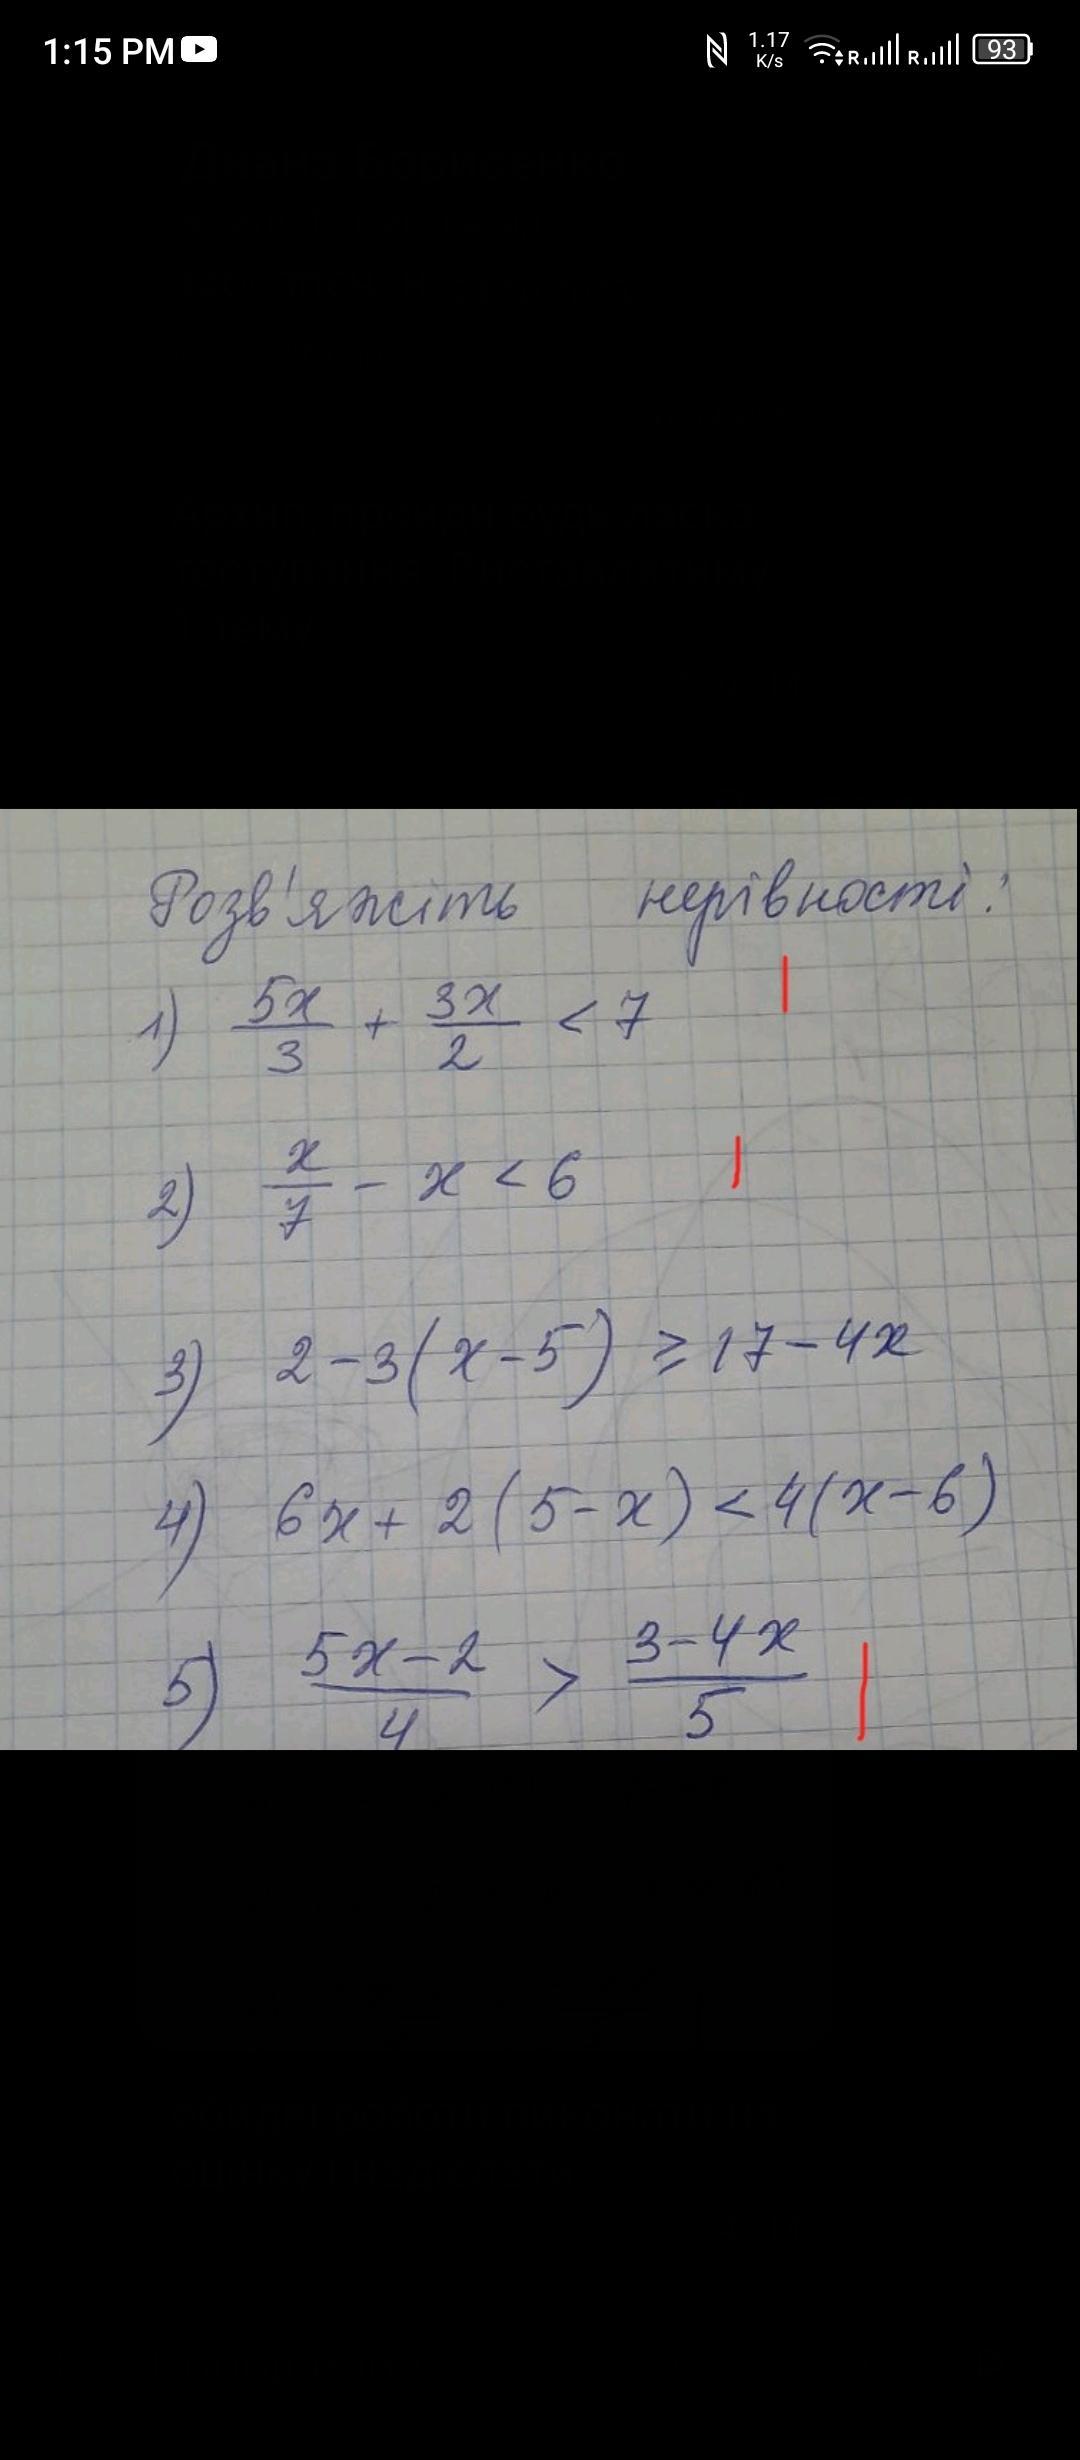 1:15 PM 1.17 K/s R R 93
Розв'яжіть нерівності:
1) 5x/3 + 3x/2 < 7
2) x/7 - x < 6
3) 2-3(x-5) ≥ 17-4x
4) 6x+2(5-x)<4(x-6)
5) 5x-2/4 > 3-4x/5